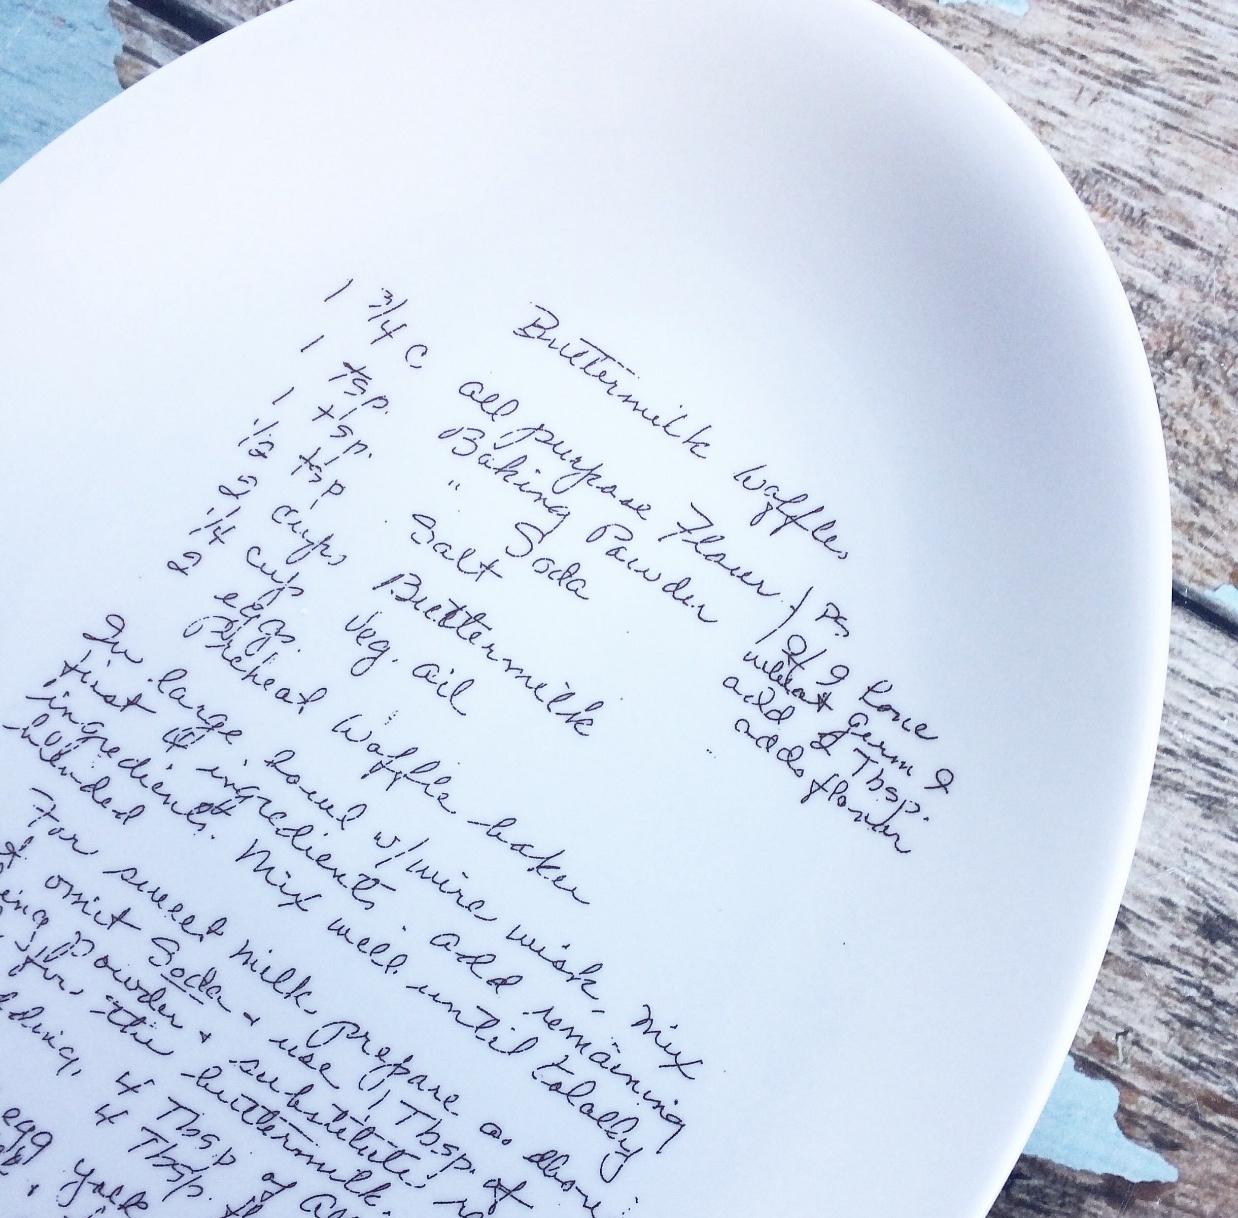 Buttermilk Waffles
1 3/4 C all purpose Flour
1 tsp. Baking Powder
1 tsp. " Soda
1/2 tsp Salt
2 cups Buttermilk
1/4 cup Veg. oil
2 eggs.
PS
If I have
wheat Germ I
add 2 Tbsp.
adds flavor
Preheat Waffle baker
In large bowl w/wire wisk, mix
first 4 ingredients add remaining
ingredients. Mix well until totally
blended
For sweet milk prepare as above
omit Soda & use 1 Tbsp. of
Powder & substitute
for the buttermilk.
4 Tbsp of
4 Tbsp.
egg yolk